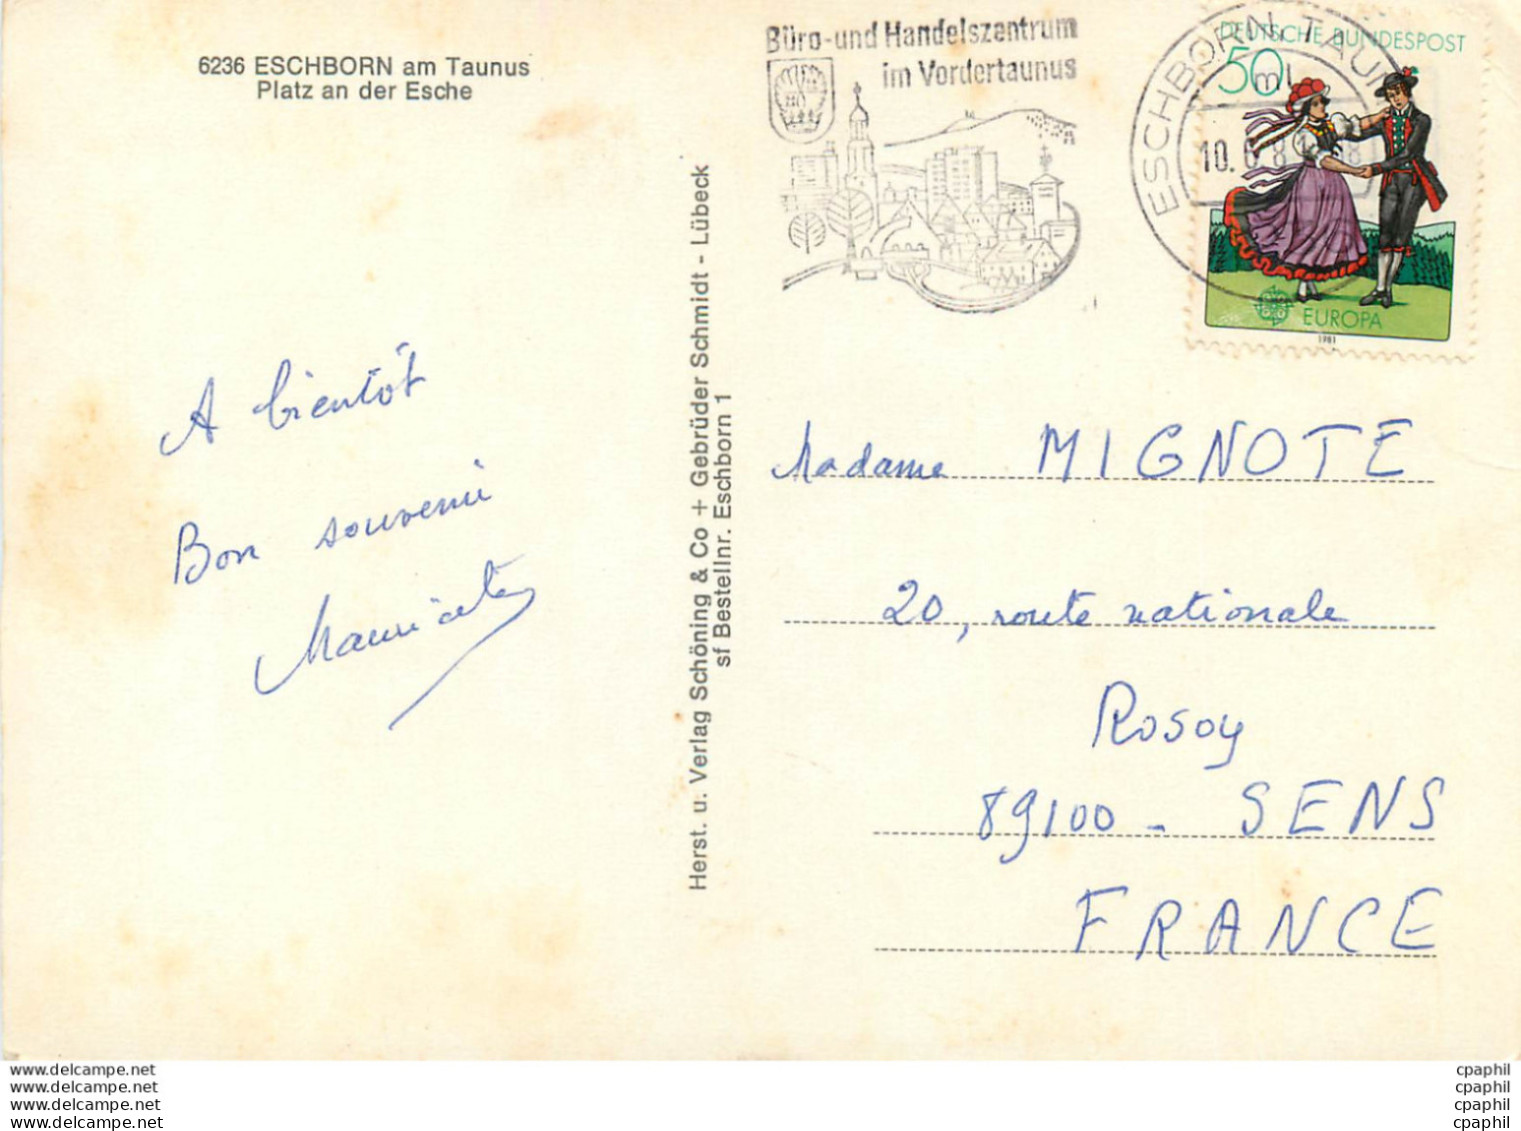 6236 ESCHBORN am Taunus
Platz an der Esche
Büro-und Handelszentrum
im Vordertaunus
ESCHBORN, TAUN
ml
10.
DEUTSCHE BUNDESPOST
50
EUROPA
1981
A bientôt
Bon souvenir
Herst. u. Verlag Schöning & Co + Gebrüder Schmidt - Lübeck
sf Bestellnr. Eschborn 1
Madame MIGNOTE
20, route nationale
Rosoy
89100 - SENS
FRANCE
www.delcampe.net
www.delcampe.net
www.delcampe.net
www.delcampe.net
cpaphil
cpaphil
cpaphil
cpaphil